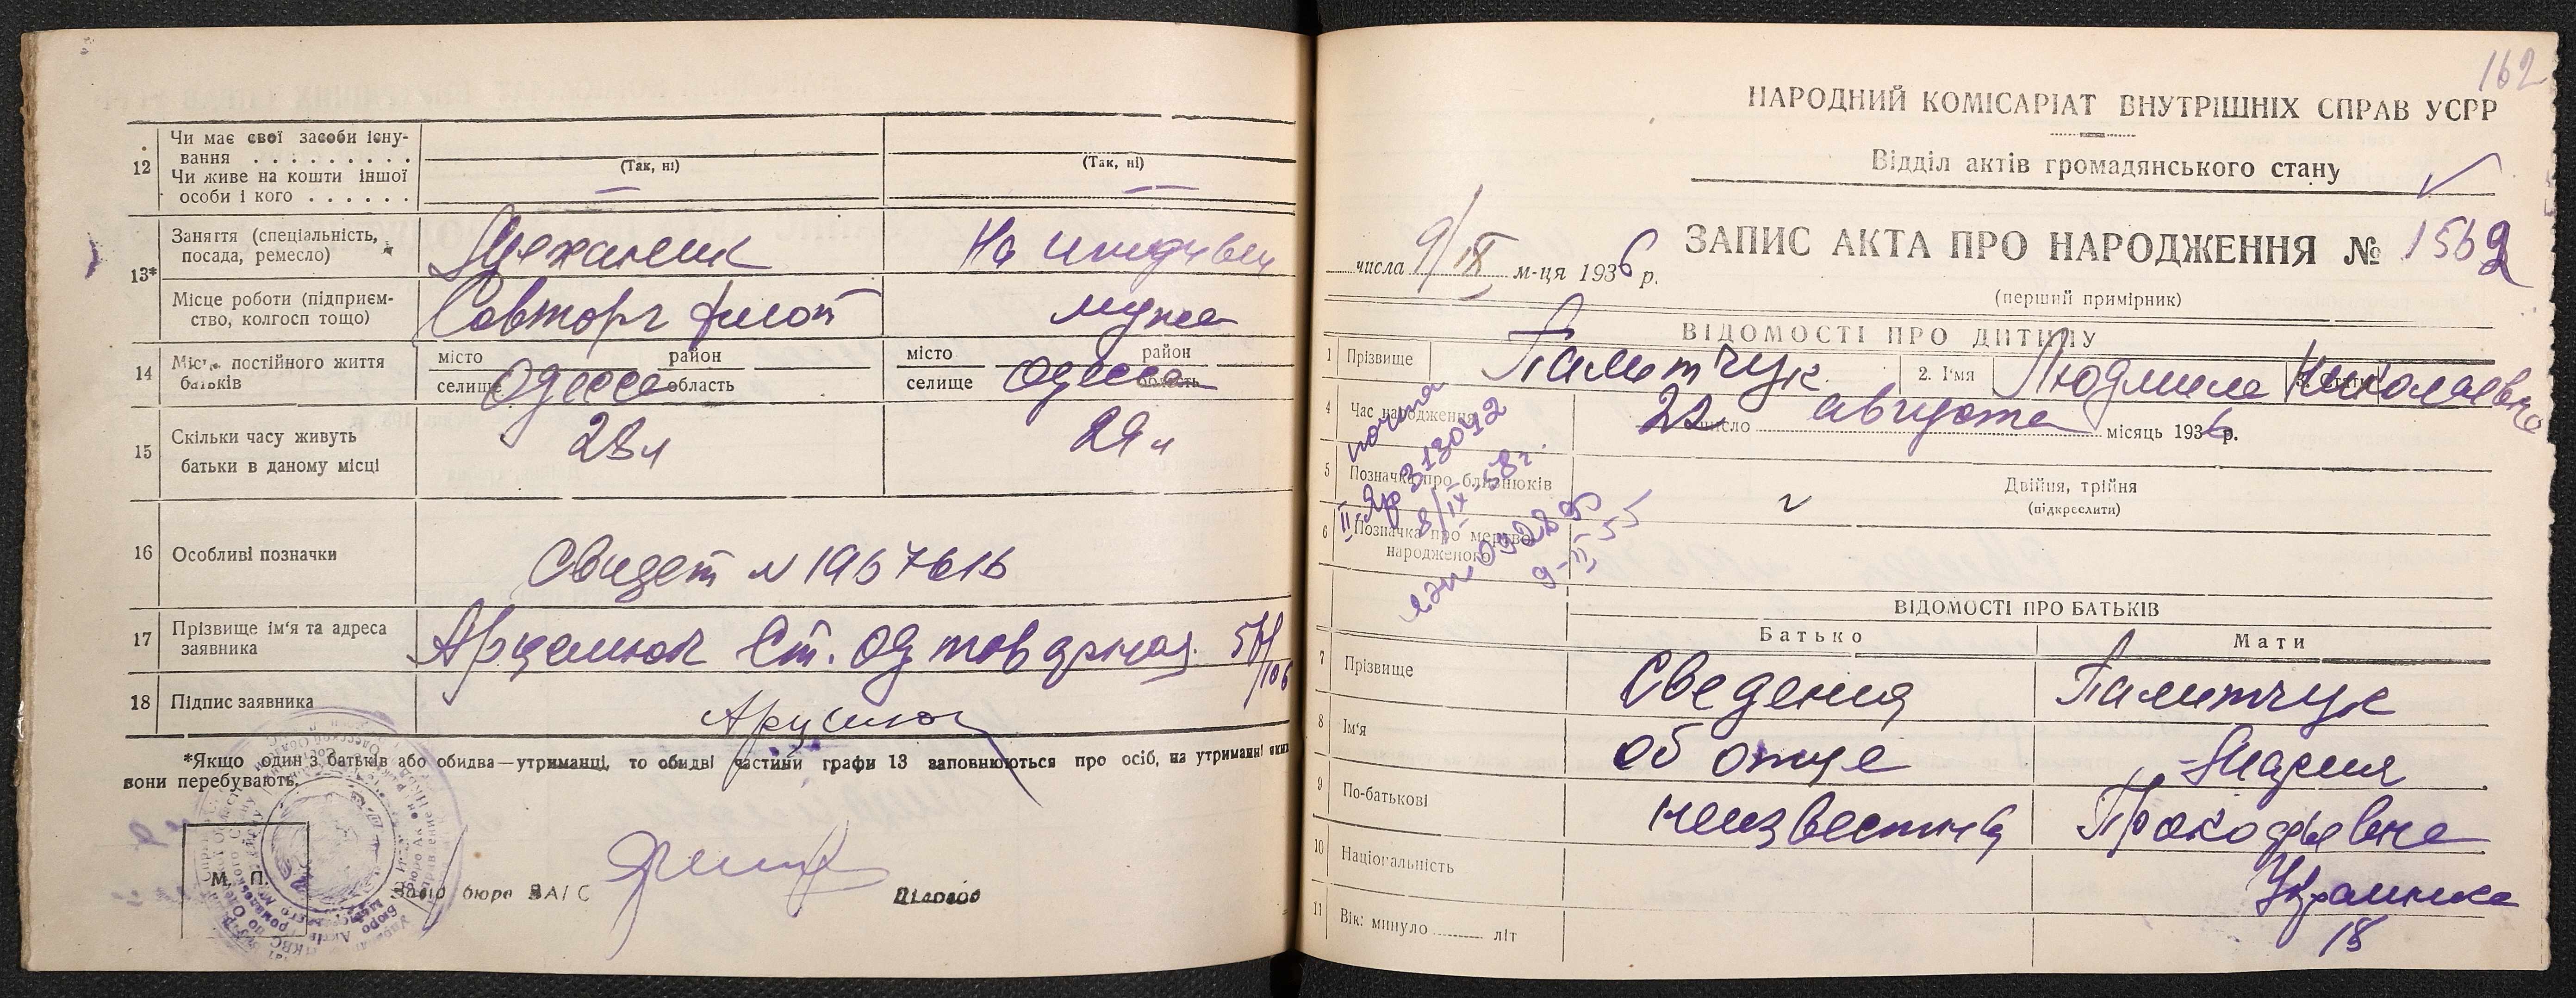 12 Чи має свої засоби існу-
вання . . . . . . . . .
(Так, ні) (Так, ні)
Чи живе на кошти іншої
особи і кого . . . . . . — —
13* Заняття (спеціальність, посада, ремесло) Механик На иждивен
Місце роботи (підприєм-
ство, колгосп тощо) Совторг флот мужа
14 Місце постійного життя
батьків
місто район місто район
селище Одесса область селище Одесса область
15 Скільки часу живуть
батьки в даному місці 28 л 29 л
16 Особливі позначки Свидет N 1967616
17 Прізвище ім'я та адреса
заявника Ст. Од товарная
18 Підпис заявника
*Якщо один з батьків або обидва—утриманці, то обидві частини графи 13 заповнюються про осіб, на утриманні яких
вони перебувають.
М. П.
Зав. бюро ЗАГС Діловод
162
НАРОДНИЙ КОМІСАРІАТ ВНУТРІШНІХ СПРАВ УСРР
Відділ актів громадянського стану
ЗАПИС АКТА ПРО НАРОДЖЕННЯ № 1569
числа 9/IX м-ця 1936 р.
(перший примірник)
ВІДОМОСТІ ПРО ДИТИНУ
1 Прізвище Памитчук 2. І'мя Людмила 3. Стать Николаевна
4 Час народження 22 число августа місяць 1936 р.
почта
II Яр 313092
8/IX-58г.
5 Позначка про близнюків Двійня, трійня
(підкреслити)
6 Позначка про мертво-
народженого
092895
9-II 55
ВІДОМОСТІ ПРО БАТЬКІВ
Батько Мати
7 Прізвище Сведения Памитчук
8 Ім'я об отце Мария
9 По-батькові неизвестны Прокофьевна
10 Національність Украинка
11 Вік: минуло ......... літ 18